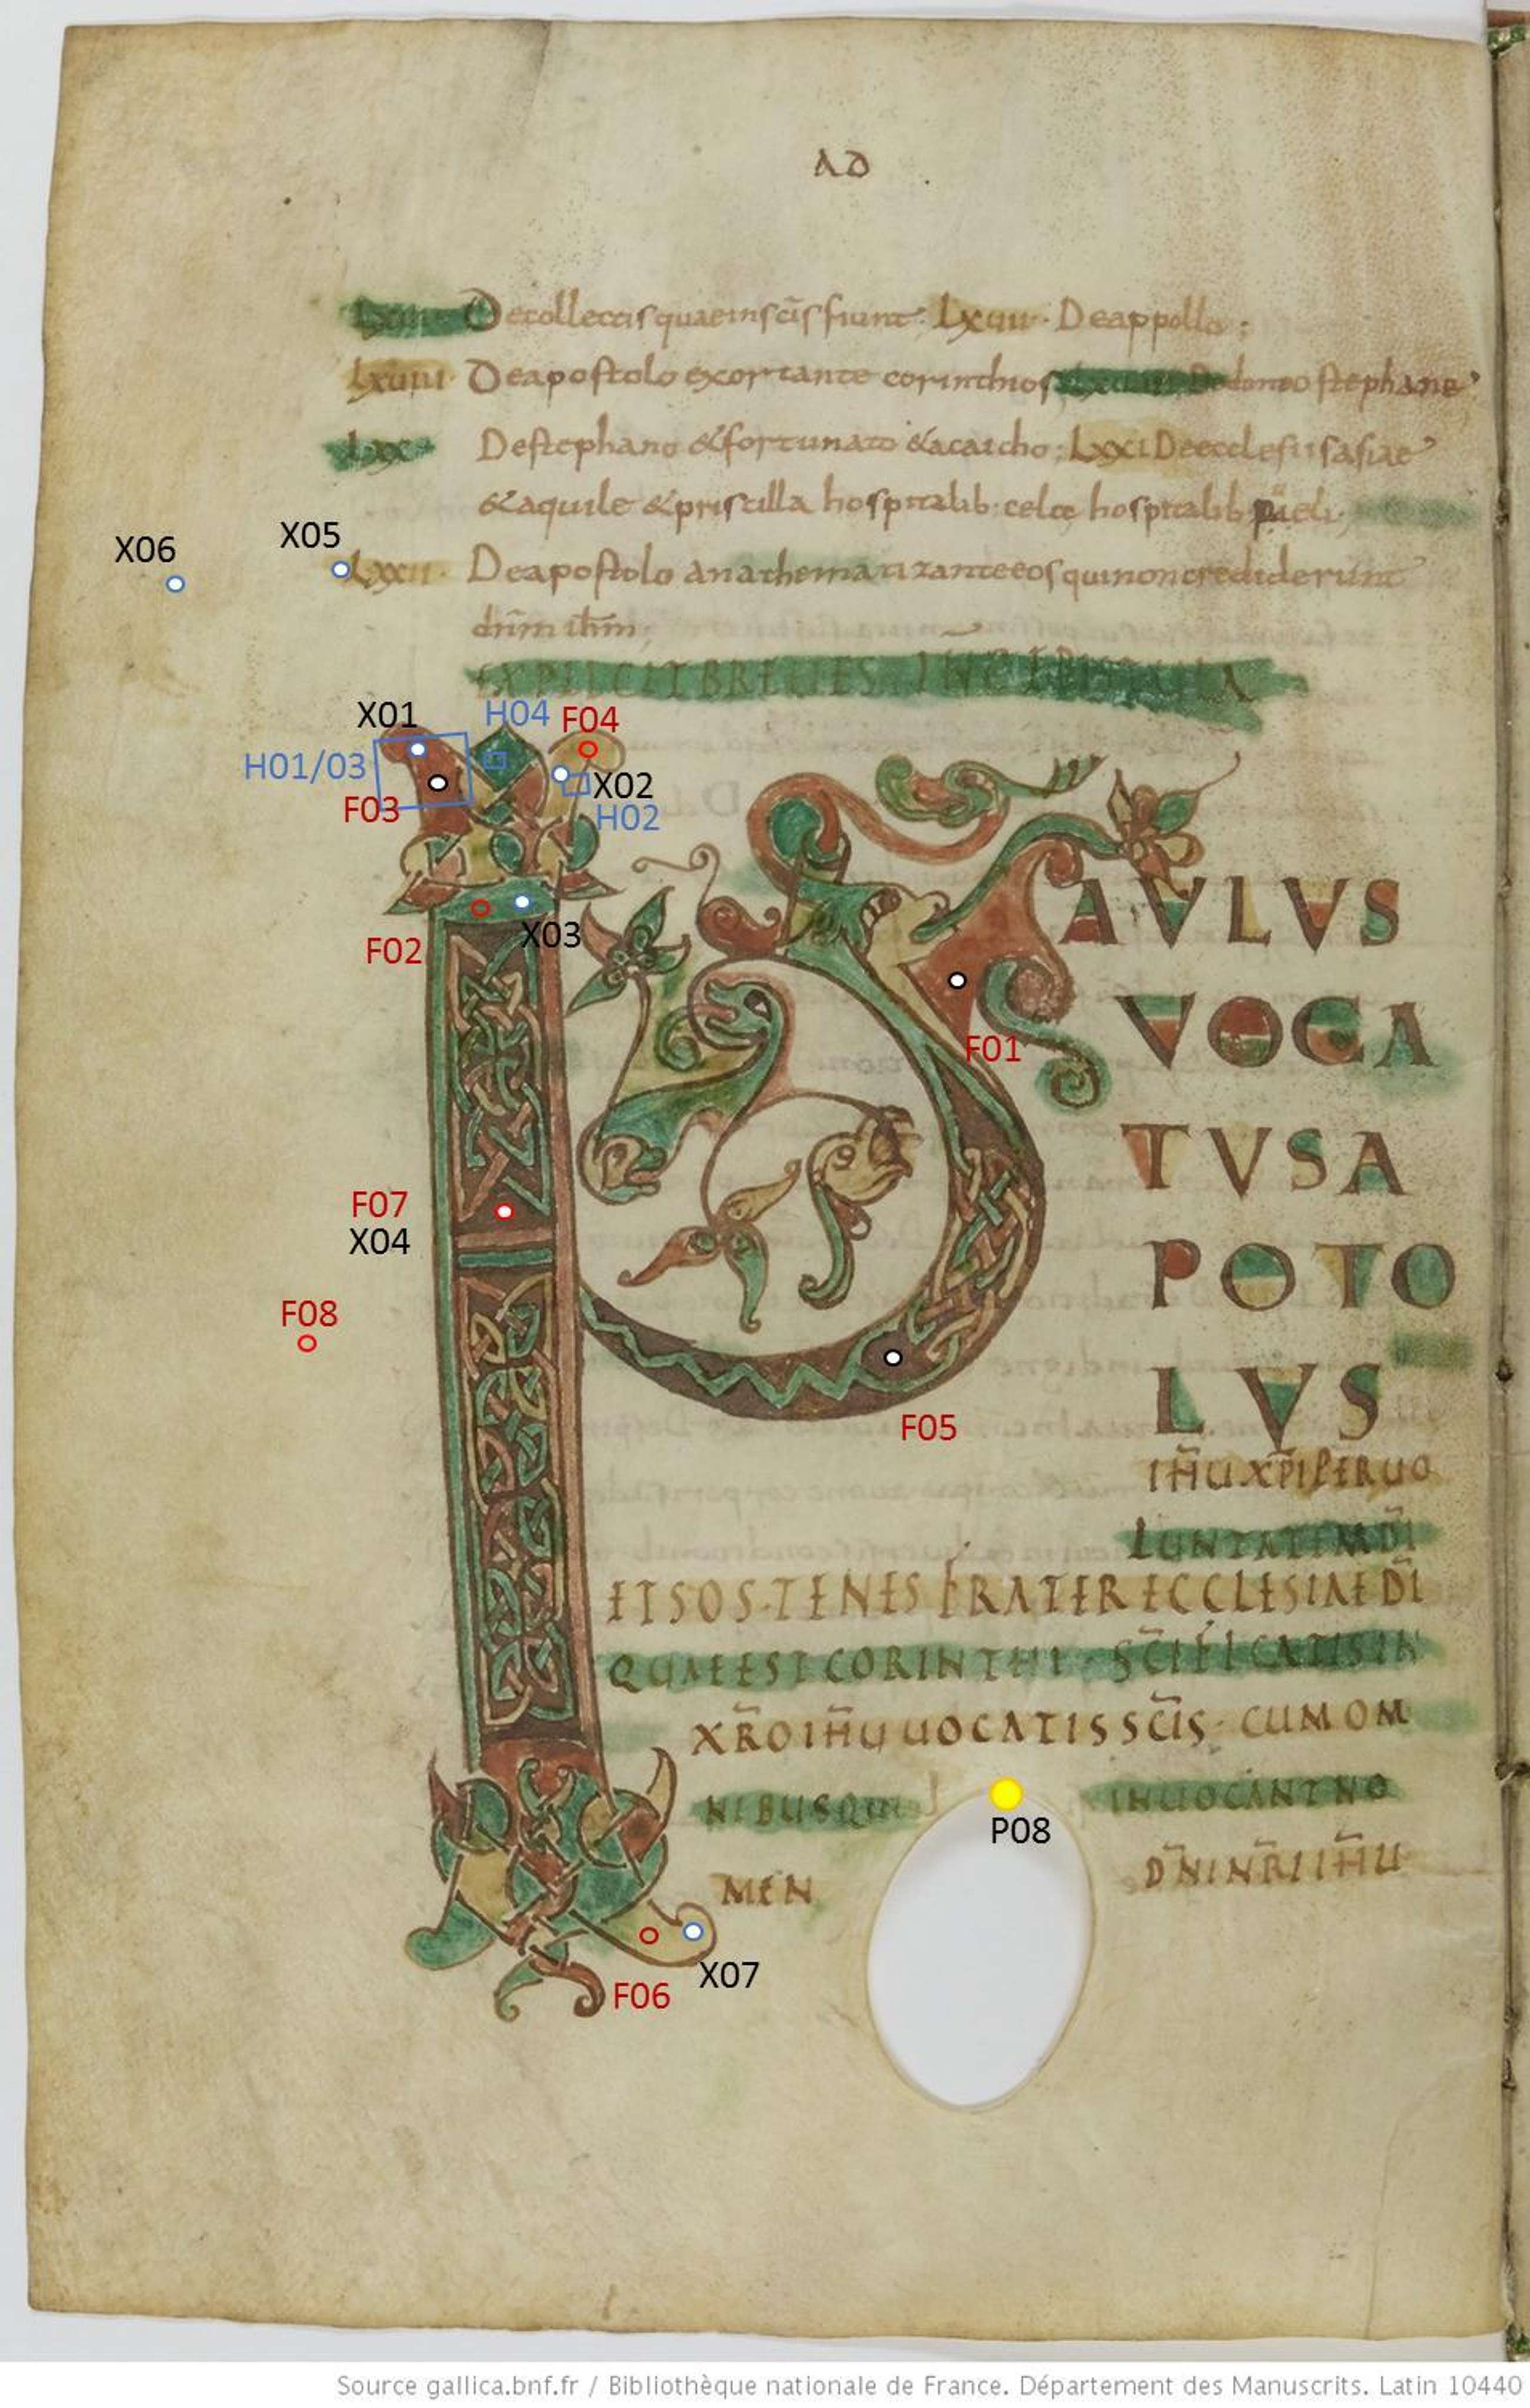 AD
De collectis quae in scīs fiunt. Lxuiii. De appollo;
Lxuiiii De apostolo exortante corinthios stephane
Lxx De stephano & fortunato & acaicho; Lxxi De ecclesiis asiae
& aquile & priscilla hospitalib: celt& hospitalib
X06 X05 Lxxii. De apostolo anathematizante eos qui non crediderunt
dn̄m ih̄m;
EXPLICIT BREUES. INCIPIT
X01 H04 F04
H01/03 X02
F03 H02
AULUS
F02 X03
VOCA
F01
TUSA
F07
X04
POTO
F08
LVS
F05
IH̄U XP̄I PER UO
LUNTATEM DI
ET SOSTENES FRATER ECCLESIAE DI
QUAE EST CORINTHI. SC̄IFICATIS IN
XR̄O IH̄U UOCATIS SC̄IS. CUM OM
NIBUS QUI INUOCANT NO
P08
MEN DN̄I NR̄I IH̄U
X07
F06
Source gallica.bnf.fr / Bibliothèque nationale de France. Département des Manuscrits. Latin 10440